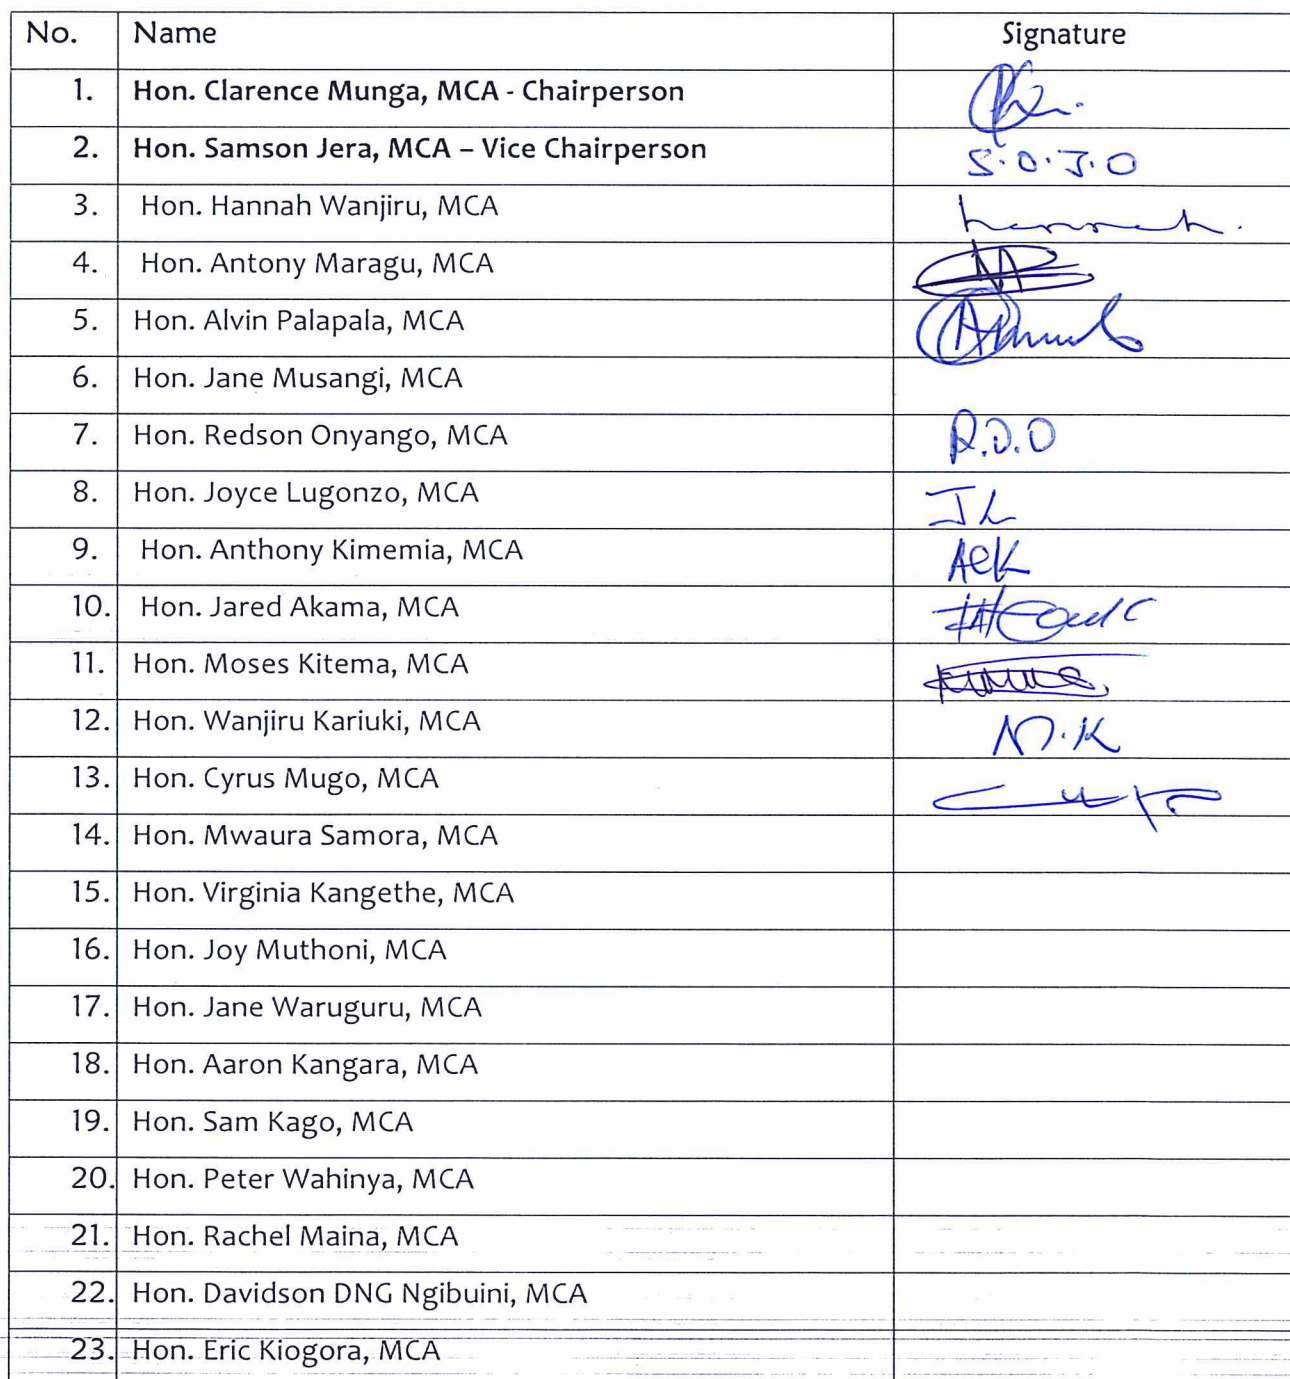 No. Name Signature
1. Hon. Clarence Munga, MCA - Chairperson
2. Hon. Samson Jera, MCA – Vice Chairperson S.O.J.O
3. Hon. Hannah Wanjiru, MCA hannah.
4. Hon. Antony Maragu, MCA
5. Hon. Alvin Palapala, MCA
6. Hon. Jane Musangi, MCA
7. Hon. Redson Onyango, MCA R.O.O
8. Hon. Joyce Lugonzo, MCA JL
9. Hon. Anthony Kimemia, MCA AEK
10. Hon. Jared Akama, MCA
11. Hon. Moses Kitema, MCA
12. Hon. Wanjiru Kariuki, MCA
13. Hon. Cyrus Mugo, MCA
14. Hon. Mwaura Samora, MCA
15. Hon. Virginia Kangethe, MCA
16. Hon. Joy Muthoni, MCA
17. Hon. Jane Waruguru, MCA
18. Hon. Aaron Kangara, MCA
19. Hon. Sam Kago, MCA
20. Hon. Peter Wahinya, MCA
21. Hon. Rachel Maina, MCA
22. Hon. Davidson DNG Ngibuini, MCA
23. Hon. Eric Kiogora, MCA